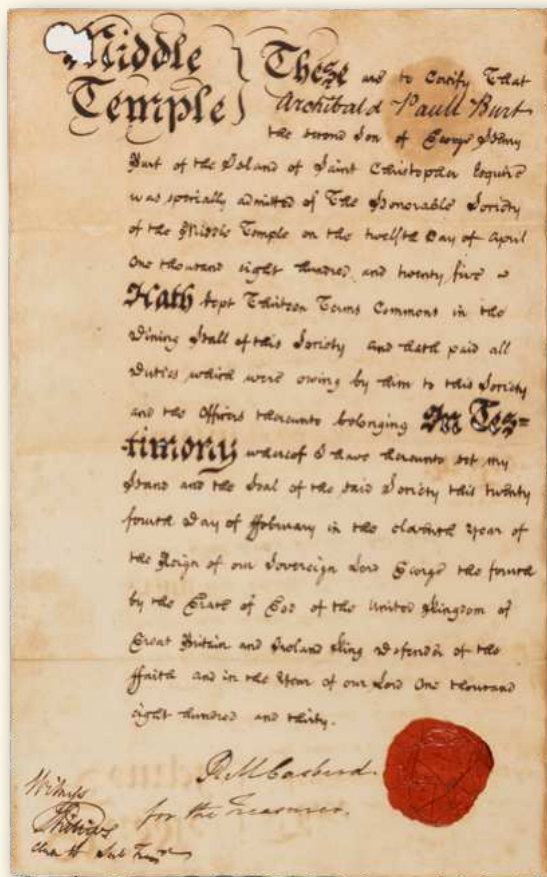 Middle Temple
These are to Certify That
Archibald Paull Burt
the second Son of George Henry
Burt of the Island of Saint Christopher Esquire
was specially admitted of The Honorable Society
of the Middle Temple on the twelfth Day of April
One thousand eight hundred and twenty five
Hath kept Thirteen Terms Commons in the
Dining Hall of this Society and hath paid all
Duties which were owing by him to this Society
and the Officers thereunto belonging In Tes=
timony whereof I have hereunto set my
Hand and the Seal of the said Society this twenty
fourth Day of ffebruary in the eleventh Year of
the Reign of our Sovereign Lord George the fourth
by the Grace of God of the United Kingdom of
Great Britain and Ireland King Defender of the
ffaith and in the Year of our Lord One thousand
eight hundred and thirty.
R M Casberd
for the Treasurer.
Witness